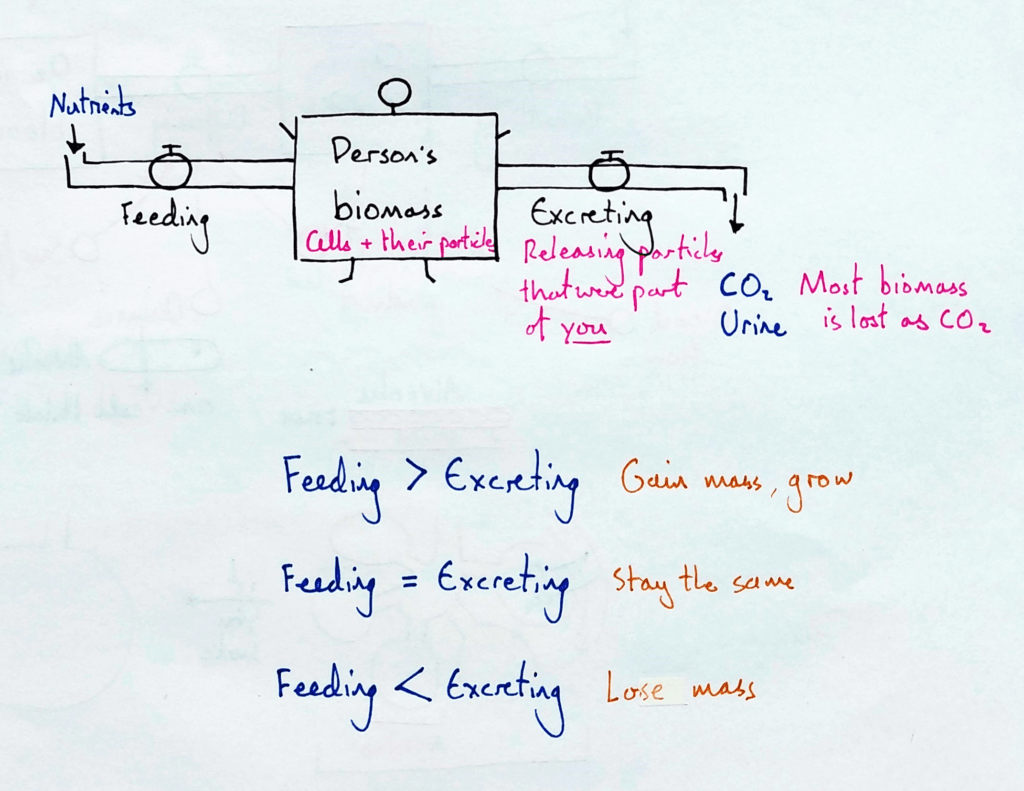 Nutrients
Person's
biomass
Cells + their particles
Feeding
Excreting
Releasing particles
that were part
of you
CO₂
Urine
Most biomass
is lost as CO₂
Feeding > Excreting Gain mass, grow
Feeding = Excreting Stay the same
Feeding < Excreting Lose mass